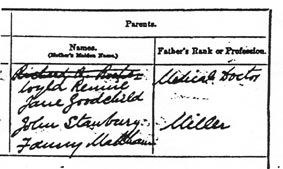 Parents.
Names.
(Mother's Maiden Name.)
Father's Rank or Profession.
Richard
Medical Doctor
Jane Goodchild
John Stanbury
Miller
Fanny